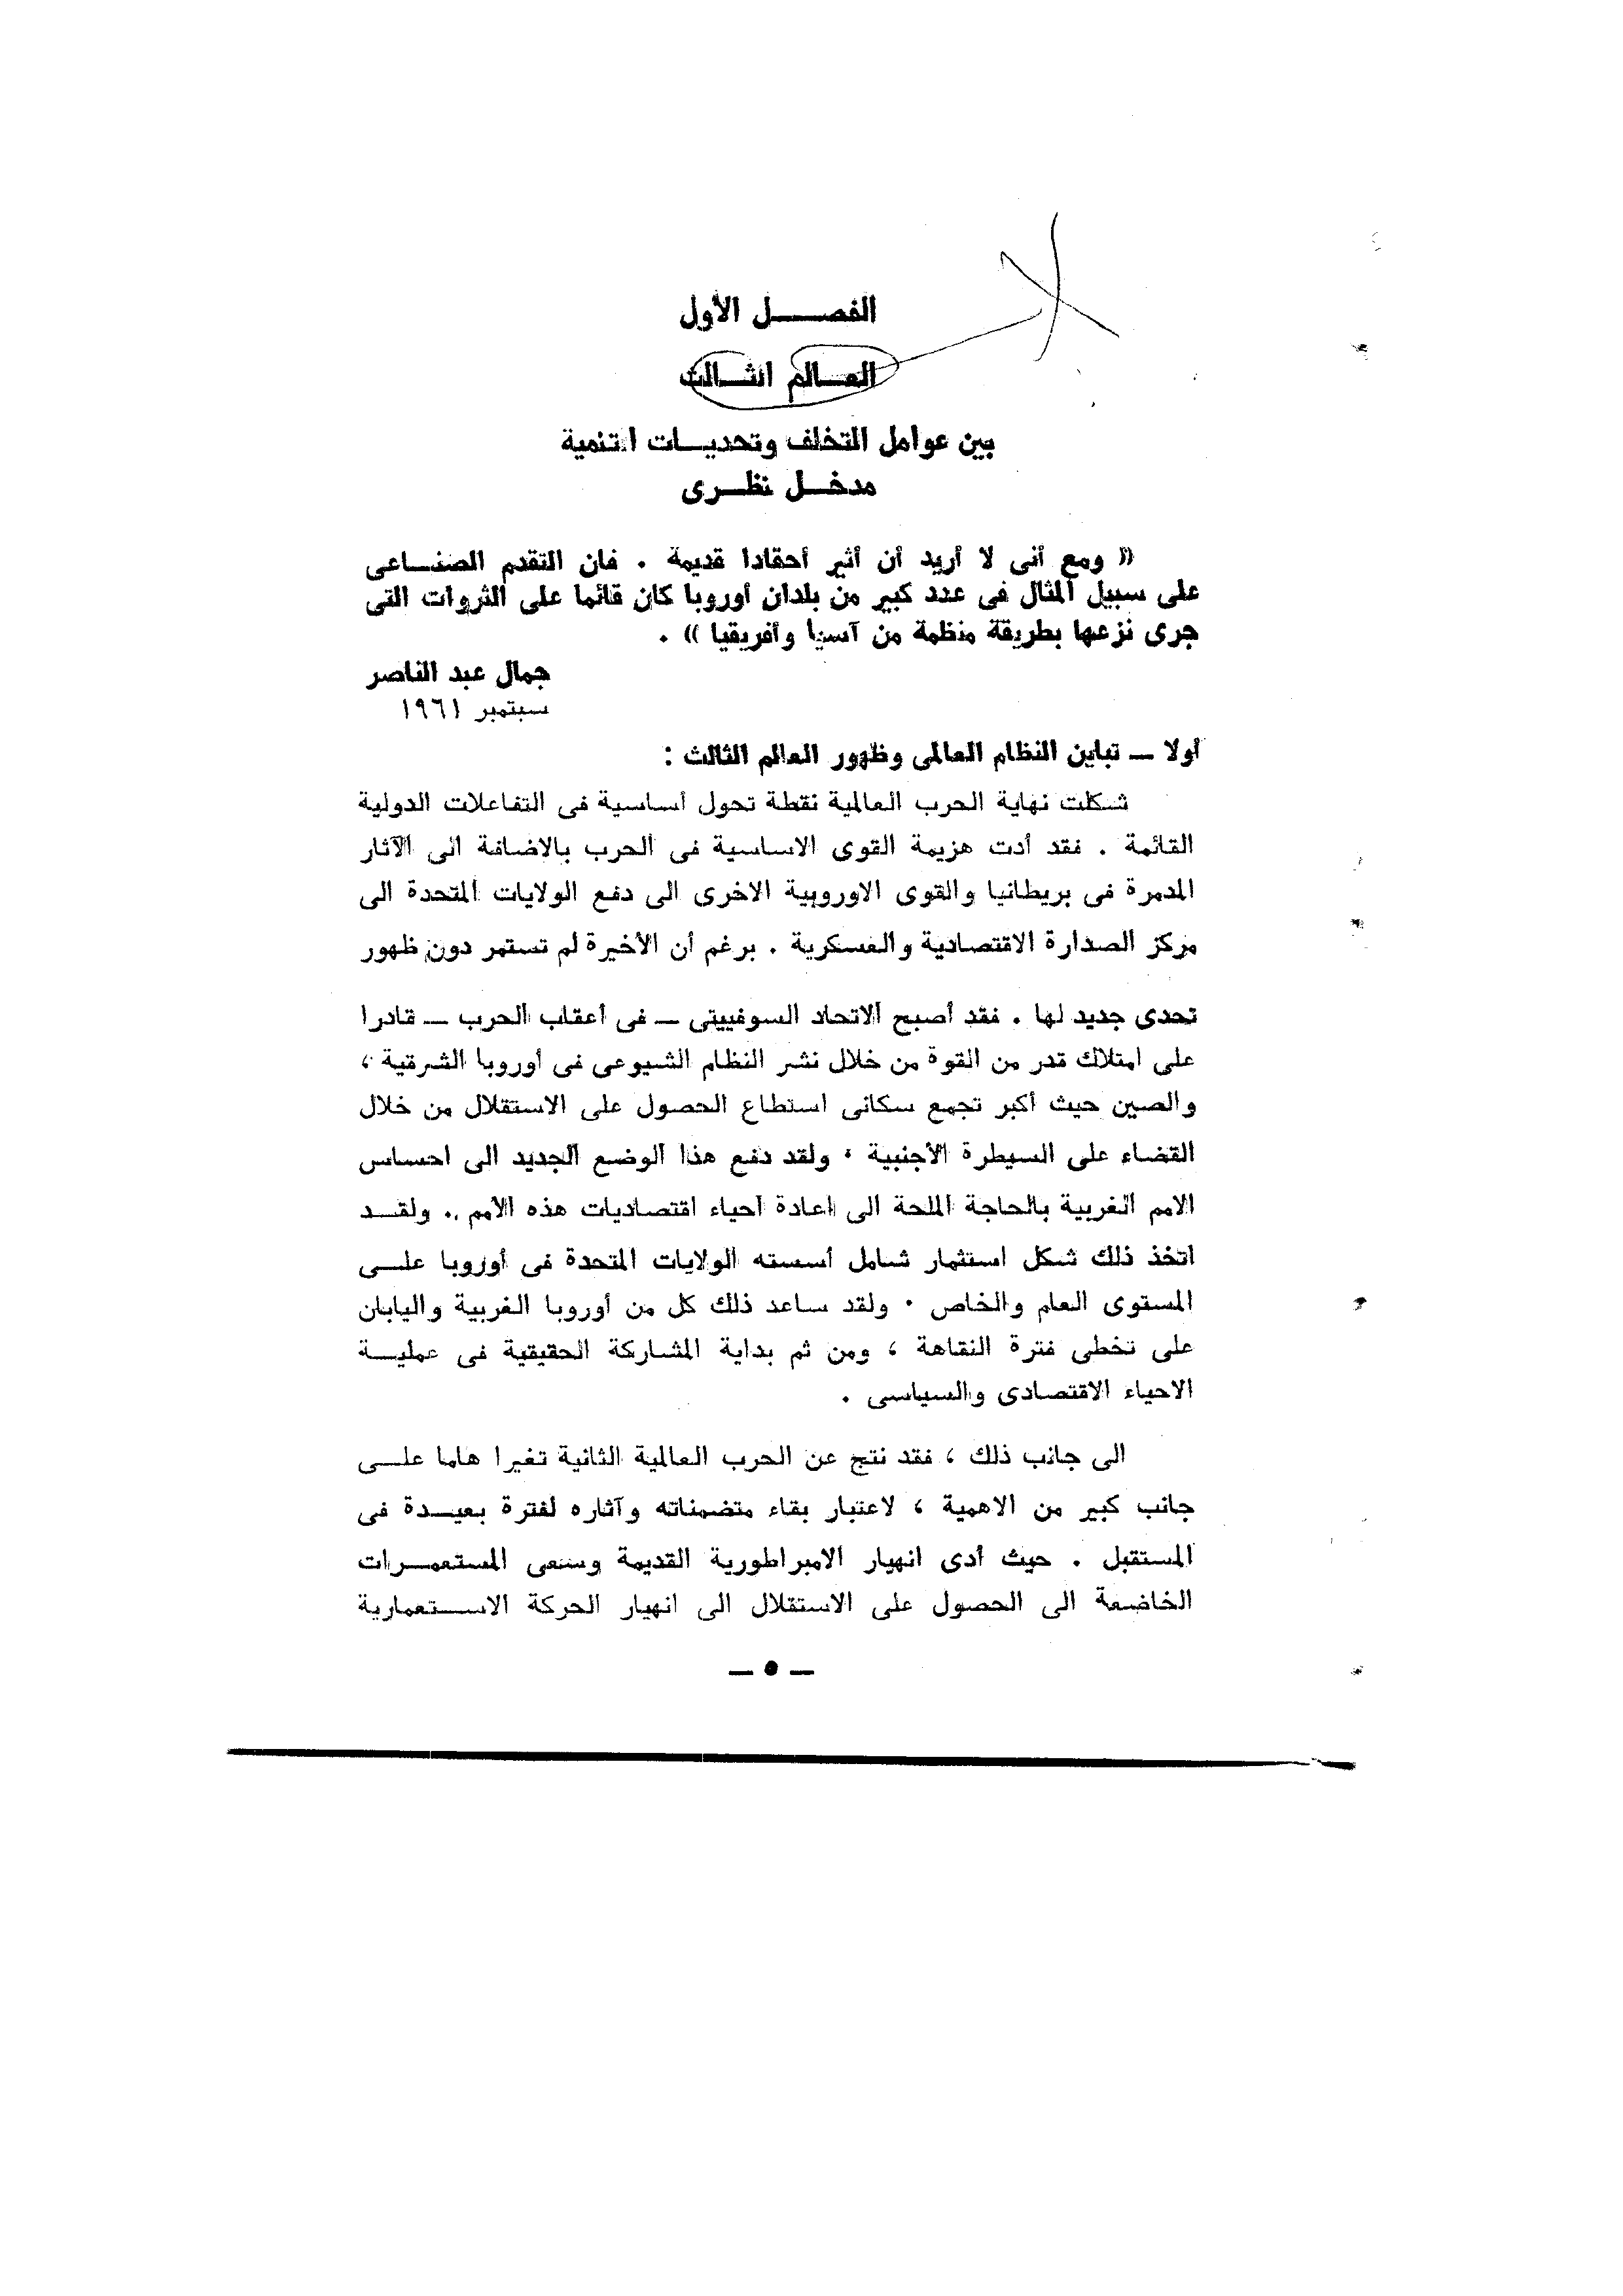 الفصل الأول
العالم الثالث
بين عوامل التخلف وتحديات التنمية
مدخل نظرى
« ومع أنى لا أريد أن أثير أحقادا قديمة . فان التقدم الصناعى
على سبيل المثال فى عدد كبير من بلدان أوروبا كان قائما على الثروات التى
جرى نزعها بطريقة منظمة من آسيا وأفريقيا » .
جمال عبد الناصر
سبتمبر ١٩٦١
أولا — تباين النظام العالمى وظهور العالم الثالث :
شكلت نهاية الحرب العالمية نقطة تحول أساسية فى التفاعلات الدولية
القائمة . فقد أدت هزيمة القوى الاساسية فى الحرب بالاضافة الى الآثار
المدمرة فى بريطانيا والقوى الاوروبية الاخرى الى دفع الولايات المتحدة الى
مركز الصدارة الاقتصادية والعسكرية . برغم أن الأخيرة لم تستمر دون ظهور
تحدى جديد لها . فقد أصبح الاتحاد السوفييتى — فى أعقاب الحرب — قادرا
على امتلاك قدر من القوة من خلال نشر النظام الشيوعى فى أوروبا الشرقية ،
والصين حيث أكبر تجمع سكانى استطاع الحصول على الاستقلال من خلال
القضاء على السيطرة الأجنبية ، ولقد دفع هذا الوضع الجديد الى احساس
الامم الغربية بالحاجة الملحة الى اعادة احياء اقتصاديات هذه الامم . ولقد
اتخذ ذلك شكل استثمار شامل أسسته الولايات المتحدة فى أوروبا على
المستوى العام والخاص . ولقد ساعد ذلك كل من أوروبا الغربية واليابان
على تخطى فترة النقاهة ، ومن ثم بداية المشاركة الحقيقية فى عملية
الاحياء الاقتصادى والسياسى .
الى جانب ذلك ، فقد نتج عن الحرب العالمية الثانية تغيرا هاما على
جانب كبير من الاهمية ، لاعتبار بقاء متضمناته وآثاره لفترة بعيدة فى
المستقبل . حيث أدى انهيار الامبراطورية القديمة وسعى المستعمرات
الخاضعة الى الحصول على الاستقلال الى انهيار الحركة الاستعمارية
— ٥ —